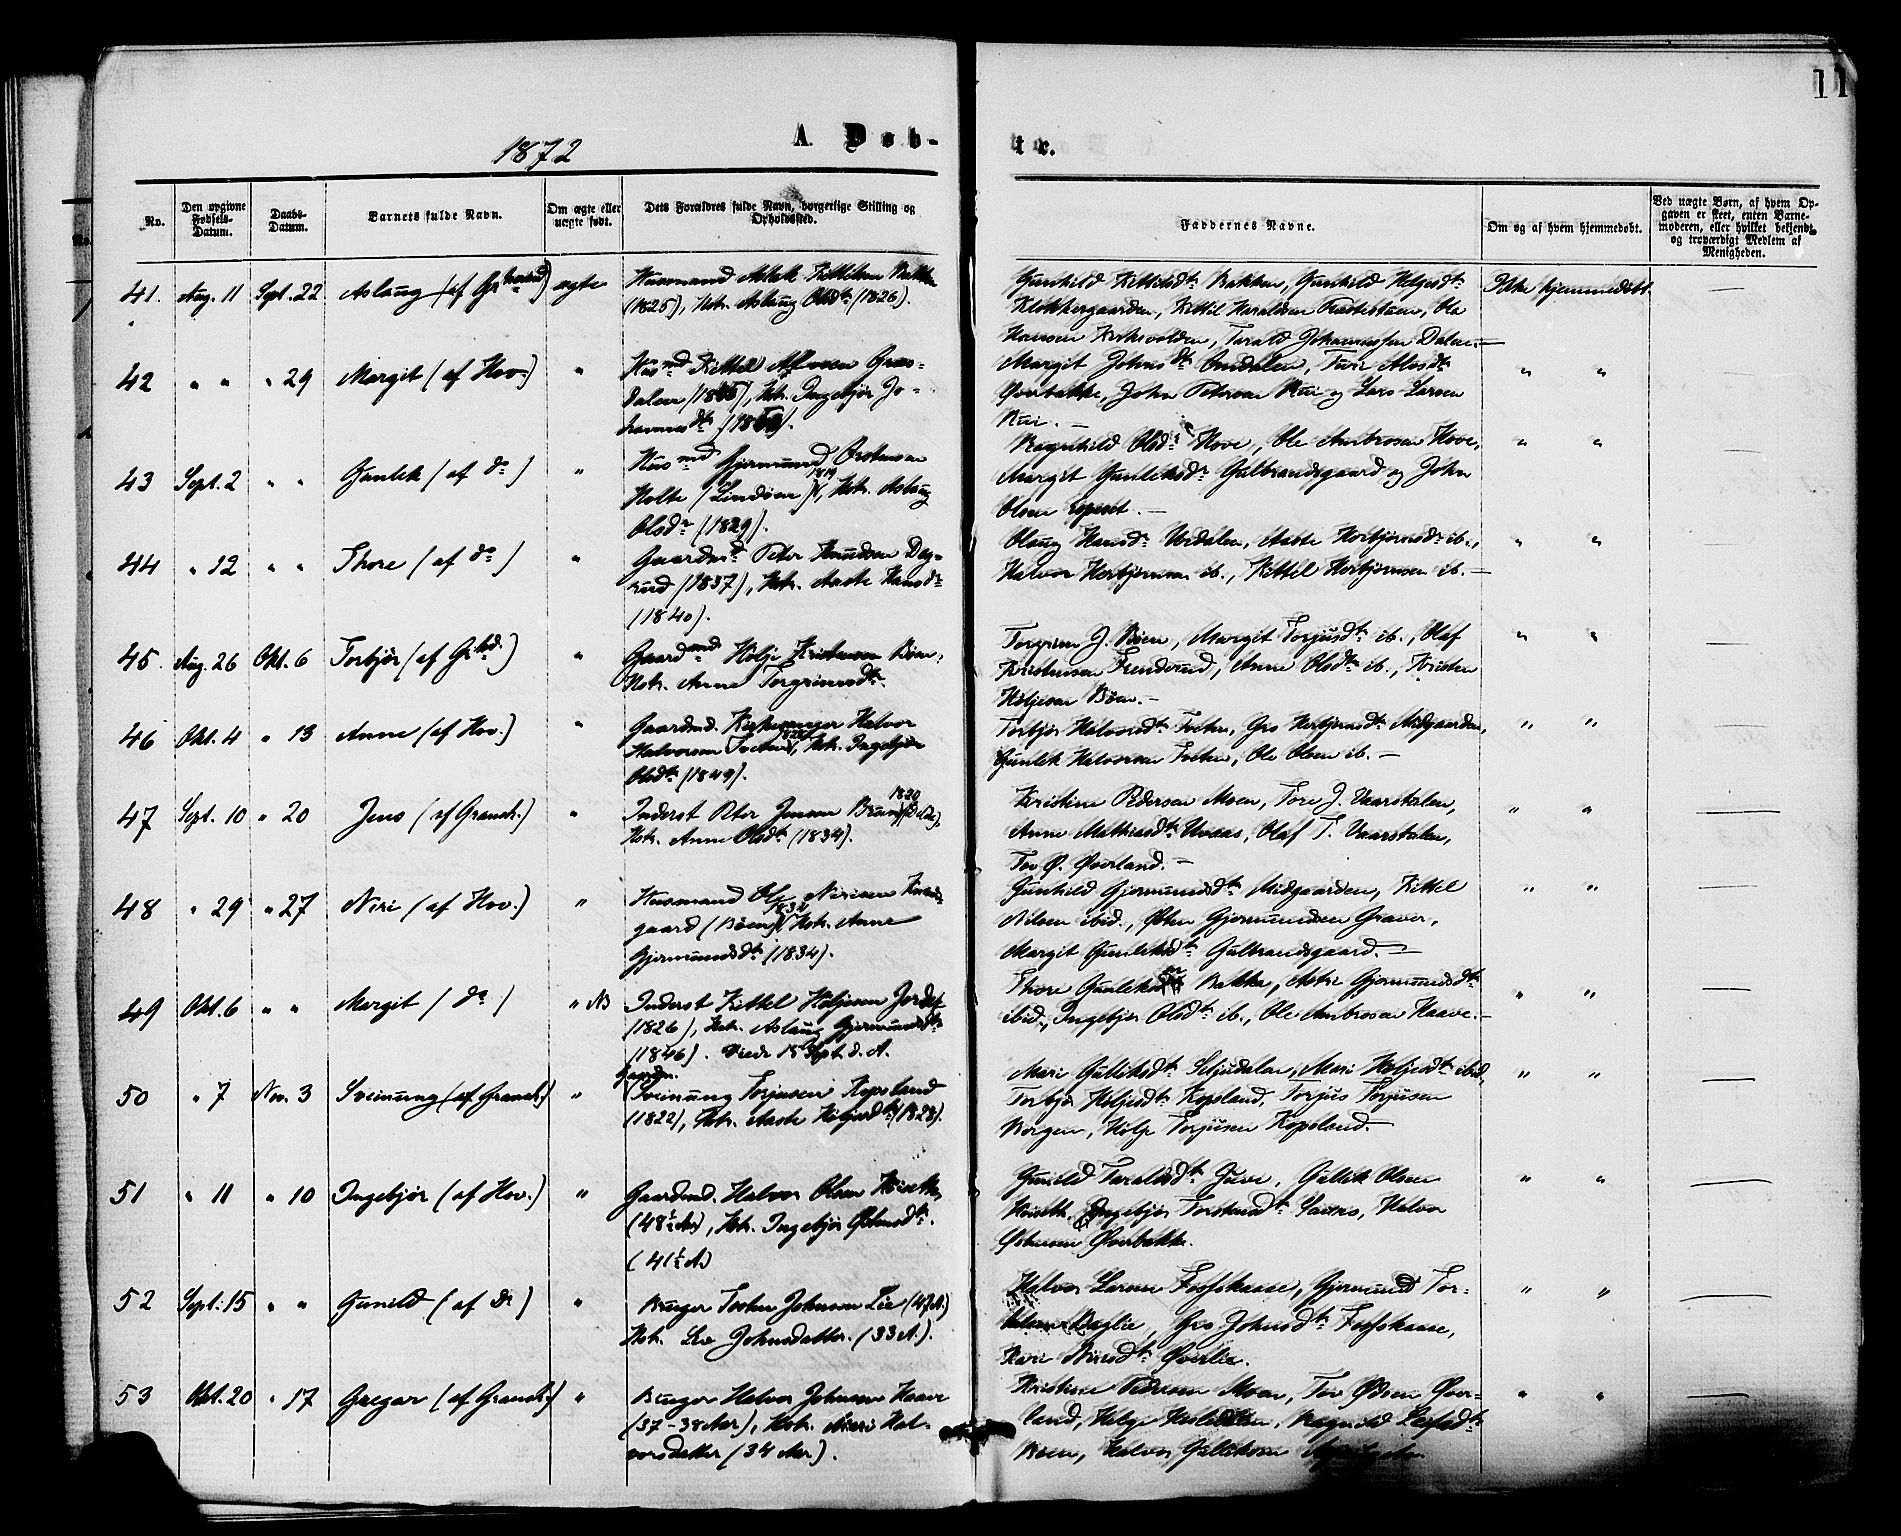 11
1872
A. Døb-
te.
No.
Den opgivne Fødsels-Datum.
Daabs-Datum.
Barnets fulde Navn.
Om ægte eller uægte født.
Dets Forældres fulde Navn, borgerlige Stilling og Opholdssted.
Faddernes Navne.
Om og af hvem hjemmedøbt.
Ved uægte Børn, af hvem Op-
gaven er skeet, enten Barne-
moderen, eller hvilket bekjendt
og troværdigt Medlem af
Menigheden.
41. Aug. 11 Sept. 22 Aslaug (af ægte
Husmand Aslak Kittilsen Bakken
(1825), Kstr. Aslaug Olsdtr (1826).
Gunhild Kittilsdtr Bakken, Gunhild Helgesdtr
Klokkergaarden, Kittil Haraldsen Ole
Hansen Kirkevolden, Tarald Johannessen Dalen.
Ikke hjemmedøbt. —
42 " " " 29 Margit (af Hov.) "
Husmd Kittel Gras-
dalen Kstr. Ingebjør Jo-
hannesdtr
Margit Johnsdtr Omdalen, Turi Alosdtr
Øverbakke, John Petersen Rui og Lars Larsen
Rui. —
" " —
43 Sept. 2 " " Gunlek (af do) "
Husmd Gjermund Østensen
Holte (Lindøen) 1819, Kstr. Aslaug
Olsdr (1829).
Ragnhild Olsdr Hove, Ole Ambrosen Hove,
Margit Gunleksdr Gulbrandsgaard og John
Olsen —
" " —
44 " 12 " " Thore (af do) "
Gaardmd Peter Knudsen Dag-
rud (1837), Kstr. Aaste Hansdr
(1840).
Olaug Hansdr Aaste Herbjørnsdr ib.,
Halvor Herbjørnsen ib., Kittil Herbjørnsen ib. —
" " —
45. Aug. 26 Okt. 6 Torbjør (af "
Gaardmd Hølje Kristensen Bøen,
Kstr. Anne Torgrimsdtr.
Torgrim J. Bøen, Margit Torjusdtr ib., Olaf
Kristensen Frenderud, Anne Olsdtr ib., Kristen
Høljesen Bøen. —
" " —
46 Okt. 4 " 13 Anne (af Hov.) "
Gaardmd. Kirkesanger Halvor
Halvorsen Tveten, Kstr. Ingebjør
Olsdtr (1849).
Torbjør Halvorsdtr Tveten, Gro Herbjørnsdtr Midgaarden,
Gunlek Halvorsen Tveten, Ole Olsen ib. —
" " —
47 Sept. 10 " 20 Jens (af Gransh.) "
Inderst Peter Jensen 1820
Kstr. Anne Olsdtr (1834).
Kristine Pedersen Moen, Tore J. Vaarstølen,
Anne Mathiasdtr Uvaas, Olaf T. Vaarstølen,
Tov Ø. Øverland. —
" " —
48 " 29 " 27 Niri (af Hov.) "
Husmand Ole Nirisen
gaard (Bøen) 1834, Kstr. Anne
Gjermundsdtr (1834).
Gunhild Gjermundsdtr Midgaarden, Kittel
Nilsen ibid., Østen Gjermundsen Graver,
Margit Gunleksdtr Gulbrandsgaard. —
" " —
49 Okt. 6 " " Margit (do) " NB
Inderst Kittel Høljesen Jordet
(1826), Kstr. Aslaug Gjermundsdtr
(1846). Viede 15 Sept. d. A.
Thore Gunleksen Bakka, Astri Gjermundsdtr
ibid., Ingebjør Olsdtr ib., Ole Ambrosen Haave. —
" " —
50 " 7 Nov. 3 Sveinung (af Gransh.) "
Gaardm.
Sveinung Torjusen Kopsland
(1822), Kstr. Aaste Høljesdtr (1828).
Mari Gulleksdtr Seljudalen, Mari Høljesdtr ibid,
Torbjør Høljesdtr Kopsland, Torjus Torjusen
Borgen, Hølje Torjusen Kopsland. —
" " —
51 " 11 " 10 Ingebjør (af Hov.) "
Gaardmd. Halvor Olsen Høiseth,
(48½ Aar), Kstr. Ingebjør Østensdtr.
(41½ A.)
Gunild Taraldsdtr Juve, Gullik Olsen
Høiseth, Ingebjør Torstensdtr Halvor
Østensen Øverbakke.
" " —
52 Sept. 15 " " Gunild (af do) "
Bruger Tosten Johnsen Lie (47 A.)
Kstr. Liv Johnsdatter. (33 A.).
Halvor Larsen Fosskaase, Gjermund Tor-
Daglie, Gro Johnsdtr Fosskaase,
Kari Nirisdtr Øverlie.
" " —
53 Okt. 20 " 17 Gregar (af Gransh.) "
Bruger Halvor Johnsen Haave
(37-38 Aar), Kstr. Mari Hal-
vorsdatter (34 Aar).
Kristine Pedersen Moen, Tov Ødsen Øver-
land, Helge Ragnild
Bøen, Halvor Gulliksen
" " —